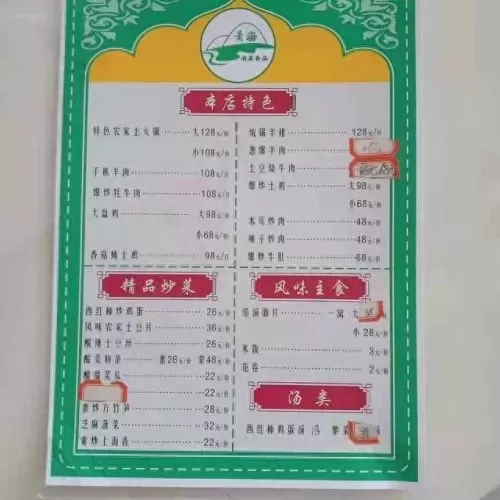 青海
清真食品
本店特色
特色农家土火锅 大128元/份
小108元/份
手抓羊肉 108元/份
爆炒牦牛肉 108元/份
大盘鸡 大98元/份
小68元/份
香菇炖土鸡 98元/份
羊排 128元/份
葱爆羊肉
土豆烧牛肉
爆炒土鸡 大98元/份
小68元/份
木耳炒肉 48元/份
辣子炒肉 48元/份
爆炒牛肚 68元/份
精品炒菜
西红柿炒鸡蛋 26元/份
风味农家土豆片 36元/份
酸辣土豆丝 26元/份
酸菜粉条 素26元/份 荤48元/份
醋熘菜瓜 22元/份
22元/份
素炒方竹笋 28元/份
芝麻菠菜 32元/份
素炒上海青 22元/份
风味主食
清汤面片 一窝 大
小 28元/份
米饭 3元/份
花卷 2元/份
汤类
西红柿鸡蛋汤 紫菜